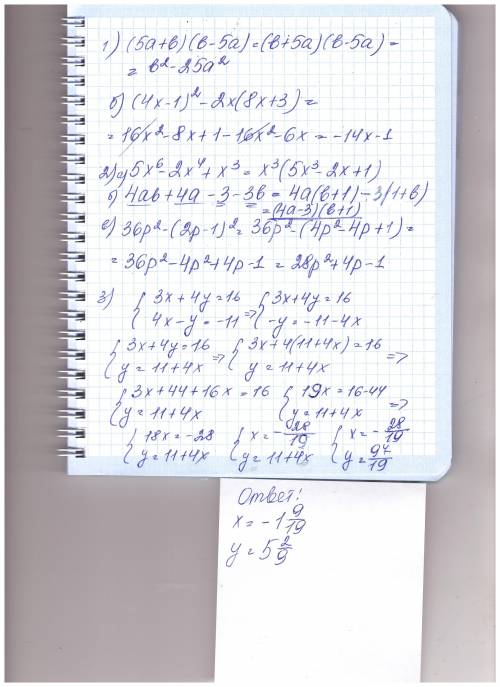 1) (5a+в)(в-5a)=(в+5a)(в-5a)=
= в²-25a²
б) (4x-1)²-2x(8x+3)=
= 16x²-8x+1-16x²-6x=-14x-1
2) а) 5x⁶-2x⁴+x³=x³(5x³-2x+1)
б) 4aв+4a-3-3в=4a(в+1)-3(1+в)
=(4a-3)(в+1)
с) 36p²-(2p-1)²=36p²-(4p²-4p+1)=
= 36p²-4p²+4p-1=28p²+4p-1
3) { 3x+4y=16 { 3x+4y=16
4x-y=-11 => -y=-11-4x
{ 3x+4y=16 => { 3x+4(11+4x)=16 =>
y=11+4x y=11+4x
{ 3x+44+16x=16 { 19x=16-44 =>
y=11+4x y=11+4x
{ 18x=-28 { x=-28/19 { x=-28/19
y=11+4x y=11+4x y=97/19
Ответ:
x=-1 9/19
y=5 2/9